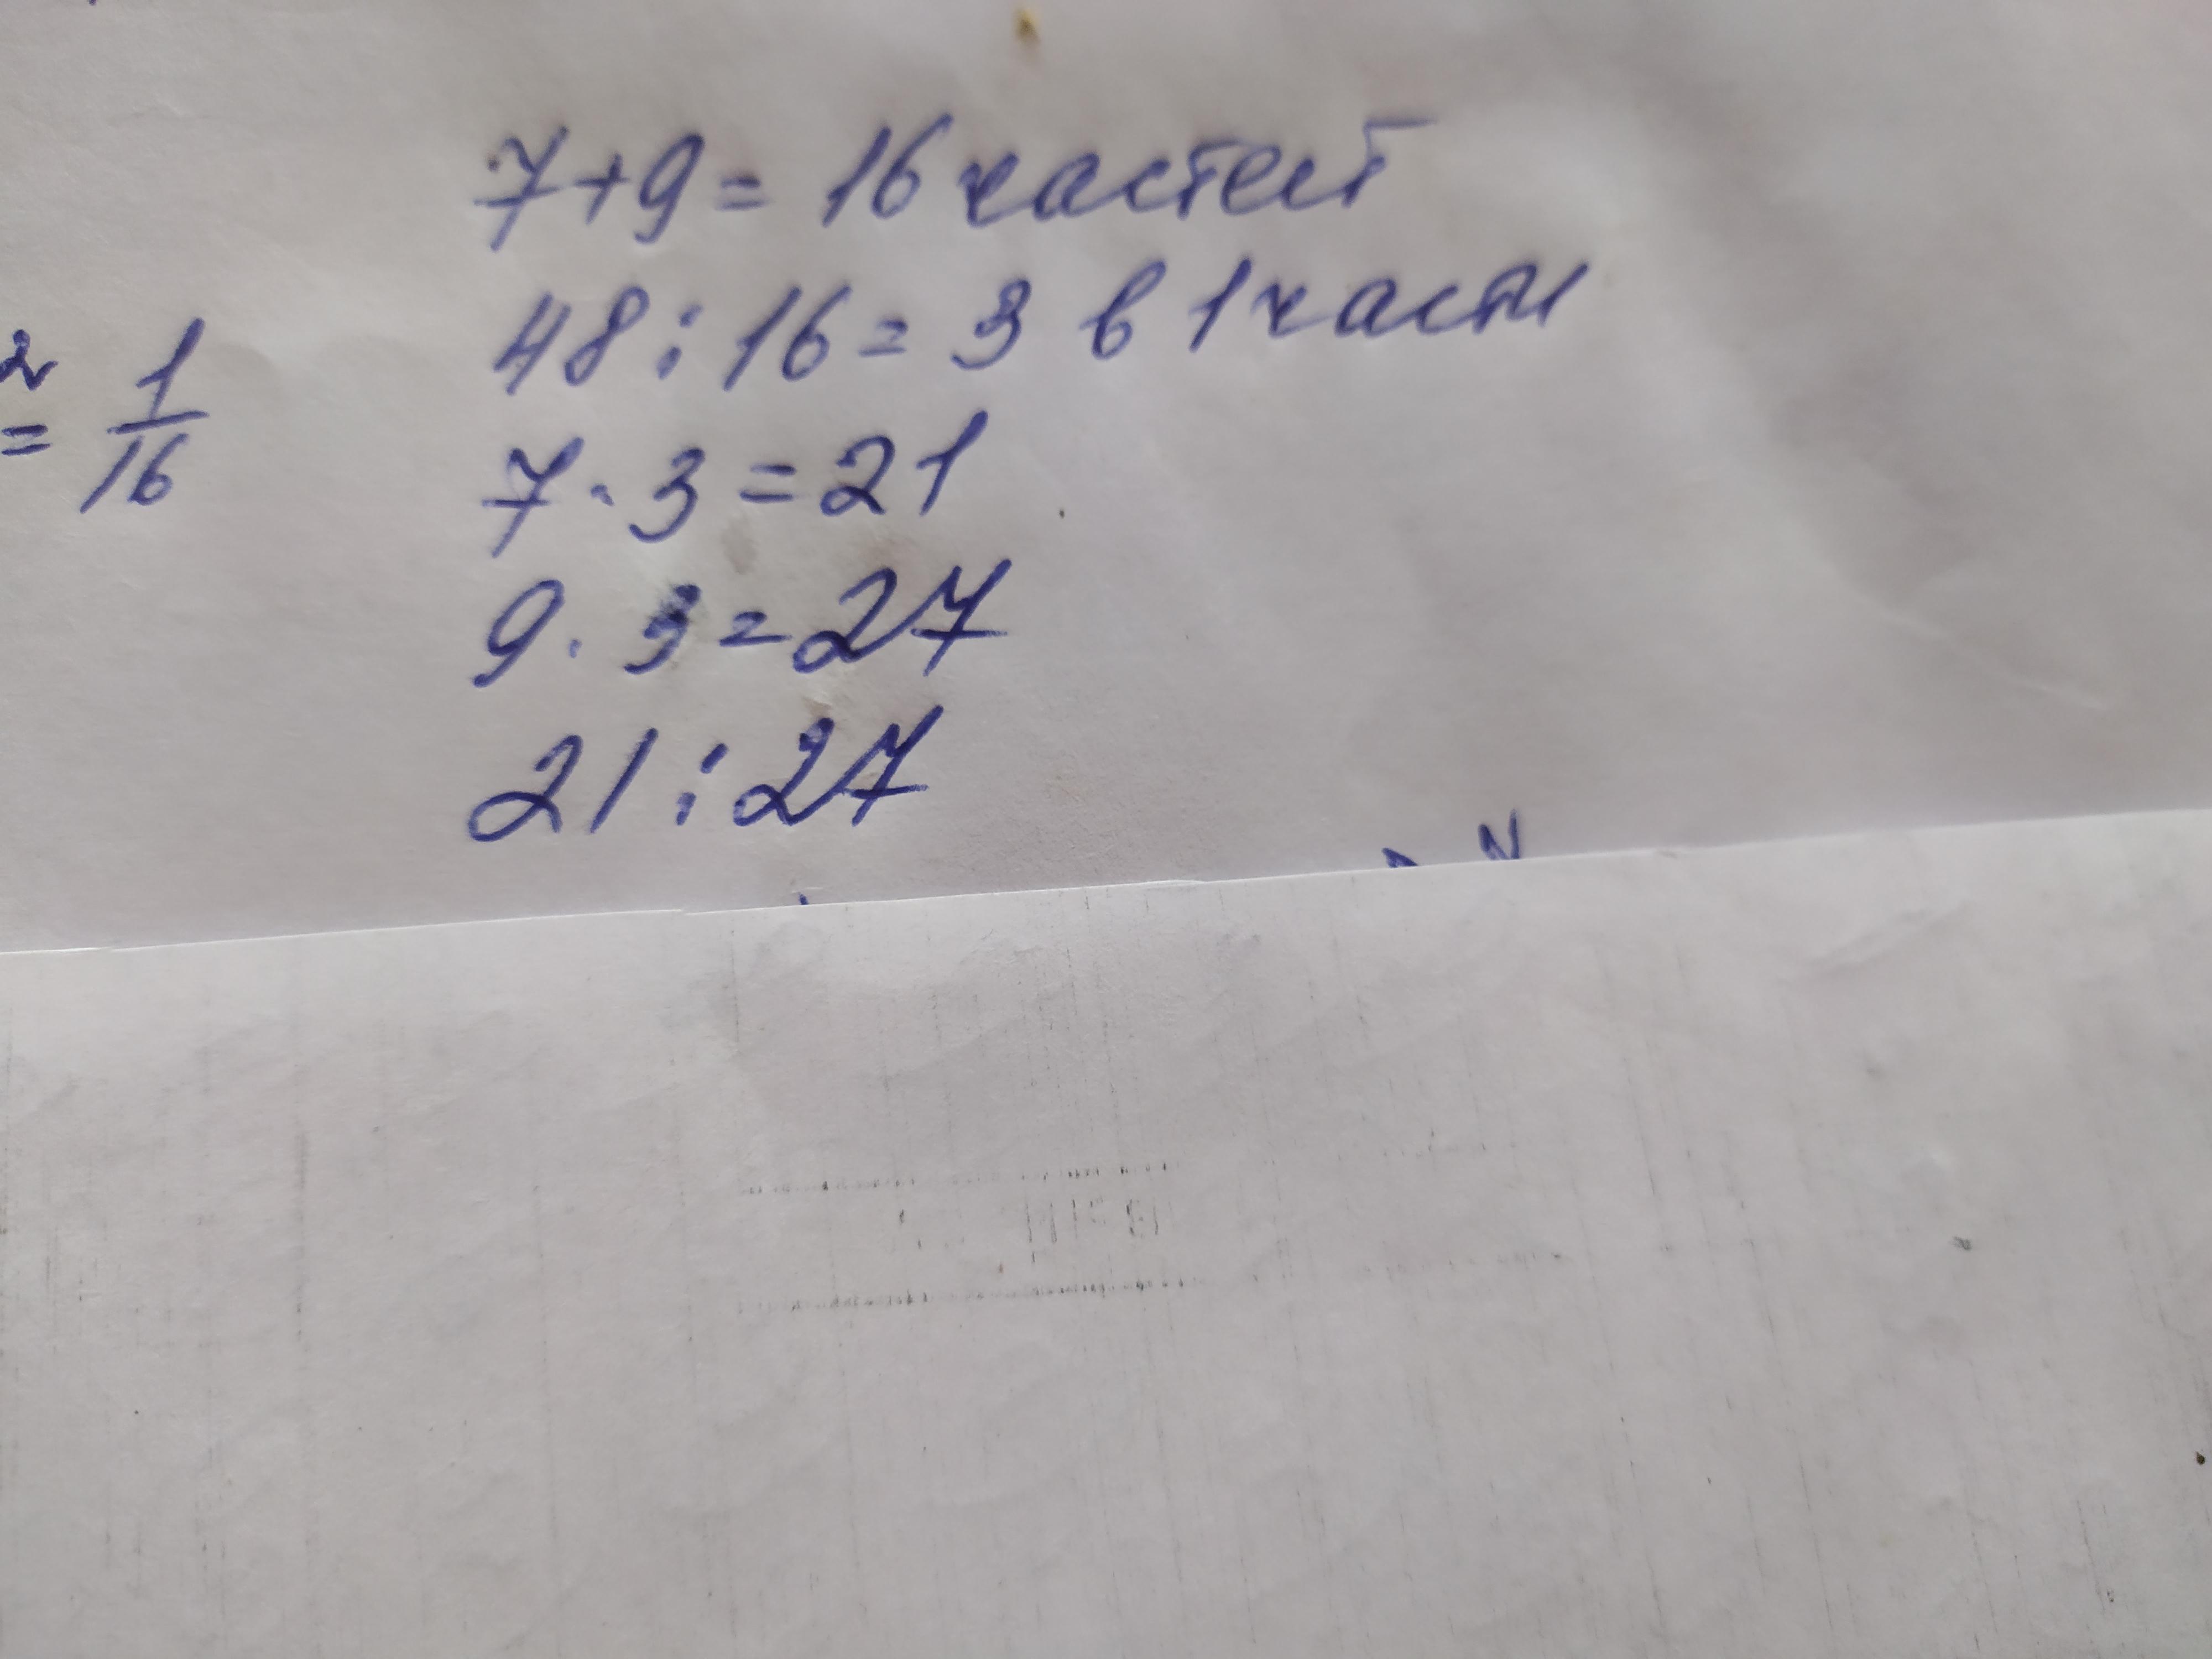 7+9 = 16 частей
48 : 16 = 3 в 1 части
2
= 1/16
7 · 3 = 21
9 · 3 = 27
21 : 27